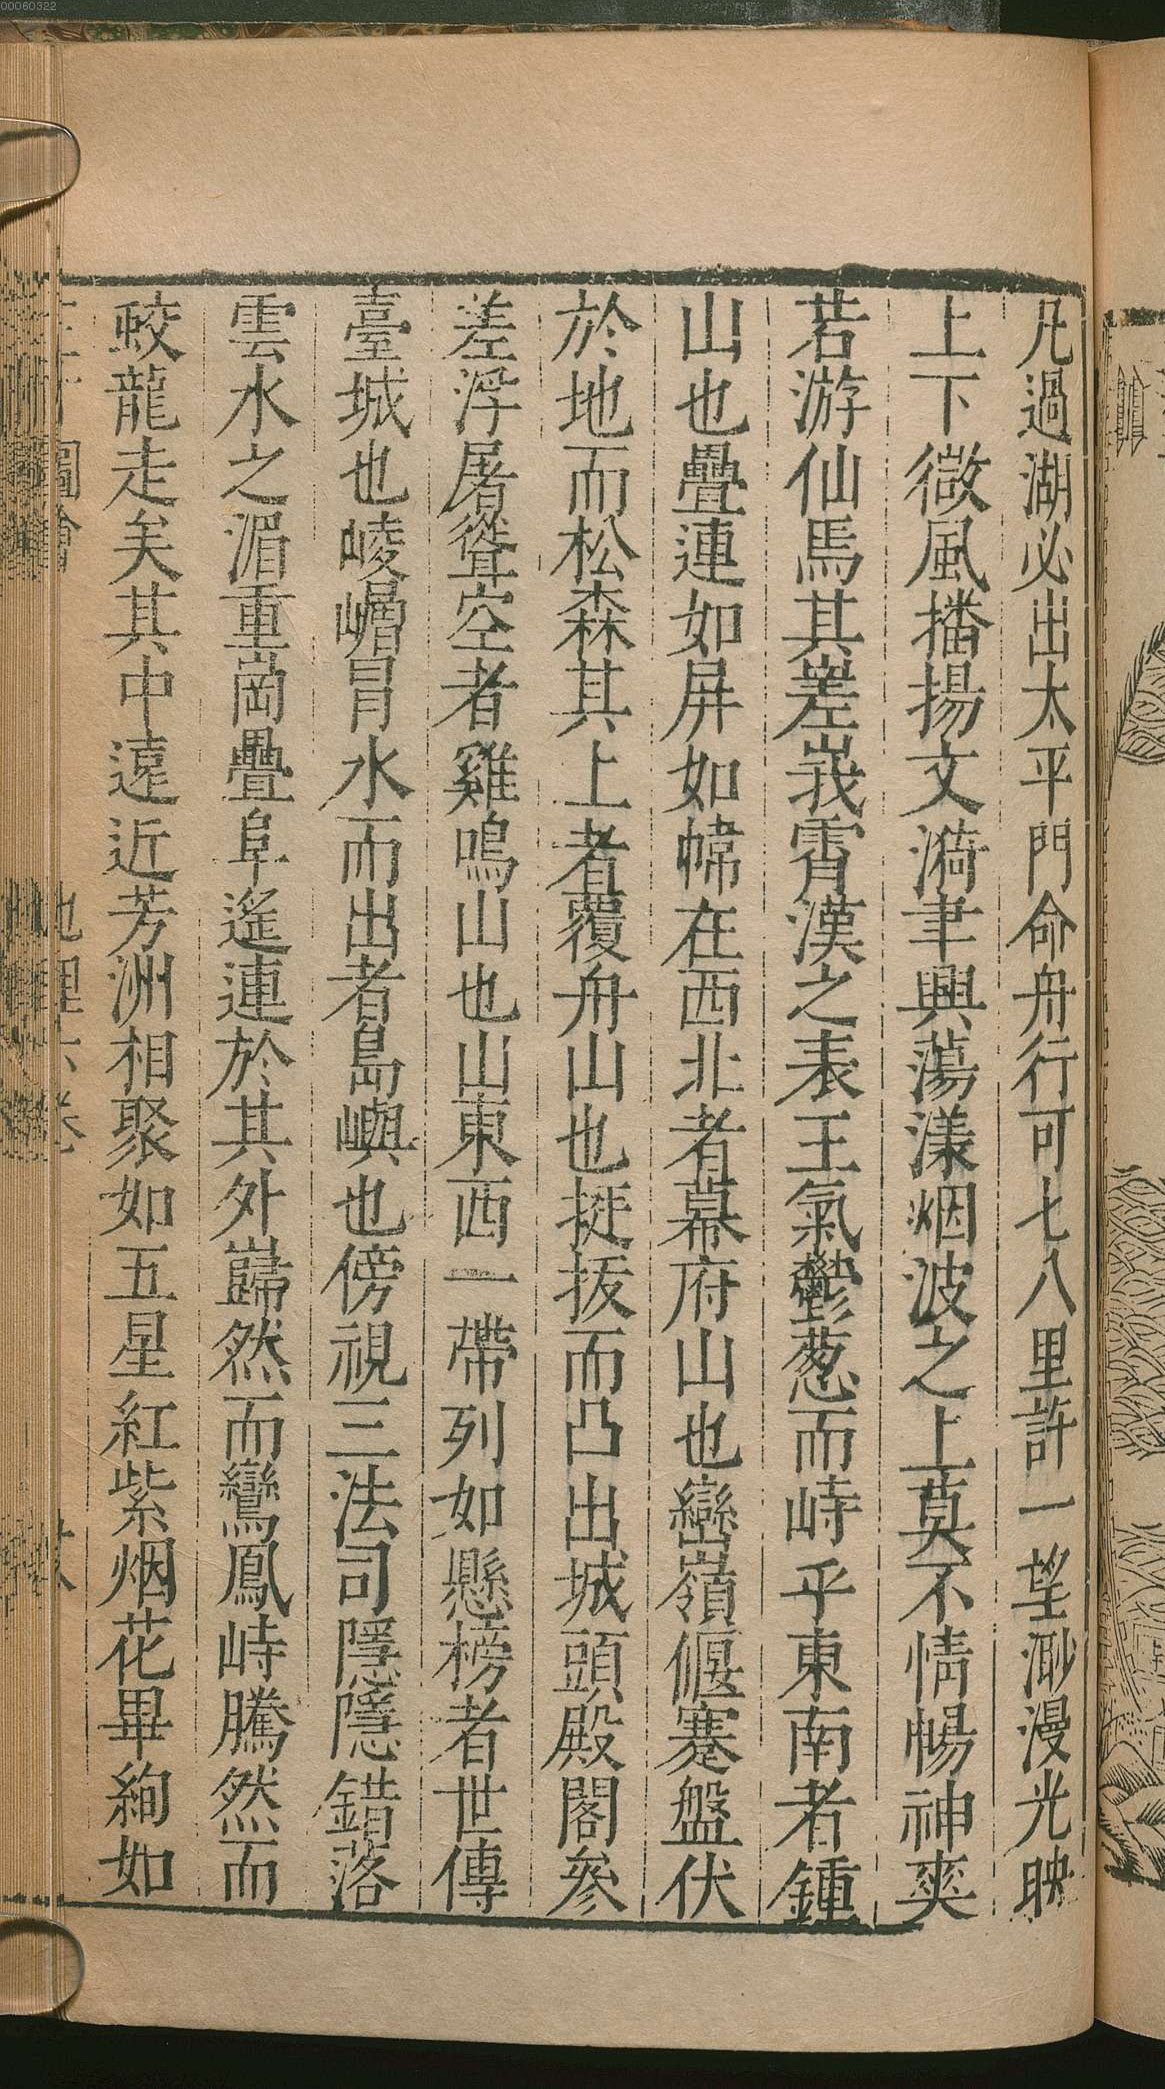 00060322
凡過湖必出太平門命舟行可七八里許一望渺漫光映
上下微風播揚文漪聿興蕩漾烟波之上莫不情暢神爽
若游仙焉其嵳峩霄漢之表王氣鬱葱而峙乎東南者鍾
山也疊連如屏如幃在西北者幕府山也巒嶺偃蹇盤伏
於地而松森其上者覆舟山也挺拔而凸出城頭殿閣參
差浮屠聳空者雞鳴山也山東西一帶列如懸榜者世傳
臺城也崚嶒冒水而出者島嶼也傍視三法司隱隱錯落
雲水之湄重崗疊阜遙連於其外巋然而鸞鳳峙騰然而
蛟龍走矣其中遠近芳洲相聚如五星紅紫烟花畢絢如
圖會
地理六卷